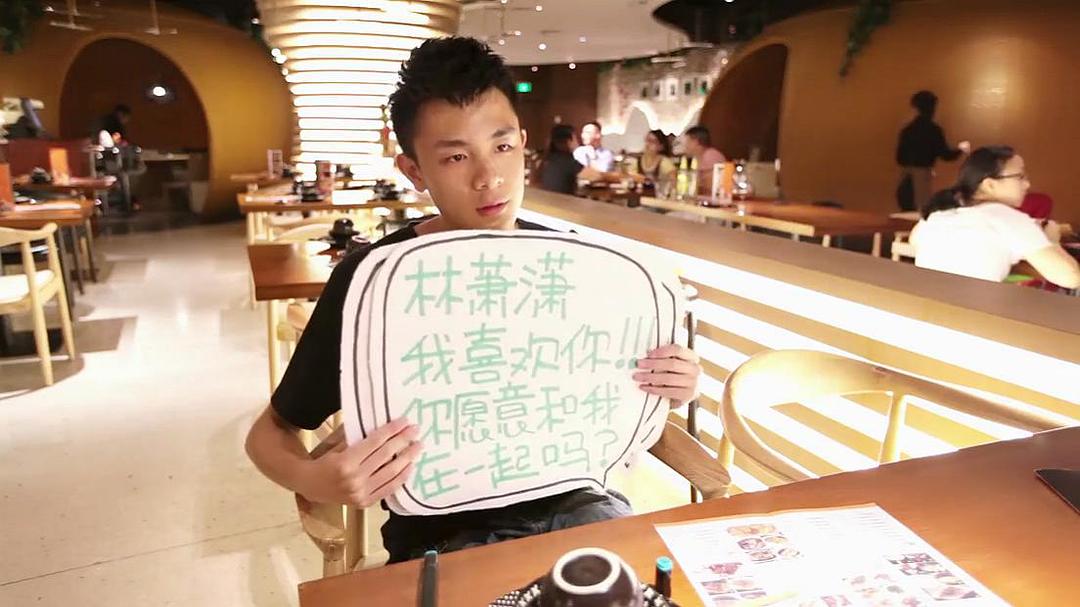 林萧潇
我喜欢你!!!
你愿意和我
在一起吗?